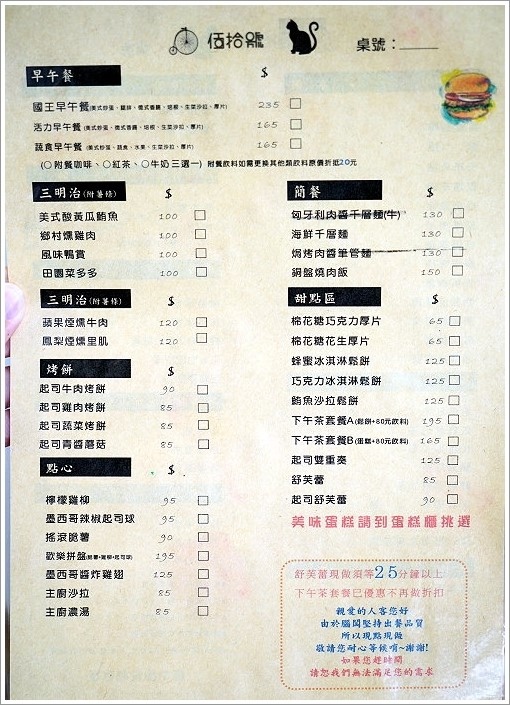 佰拾號
桌號：
早午餐 $
國王早午餐(美式炒蛋、雞排、德式香腸、培根、生菜沙拉、厚片) 235
活力早午餐(美式炒蛋、德式香腸、培根、生菜沙拉、厚片) 165
蔬食早午餐(美式炒蛋、蔬食、水果、生菜沙拉、厚片) 165
(○附餐咖啡、○紅茶、○牛奶三選一) 附餐飲料如需更換其他類飲料原價折抵20元
三明治(附薯條) $
美式酸黃瓜鮪魚 100
鄉村燻雞肉 100
風味鴨賞 100
田園菜多多 100
三明治(附薯條) $
蘋果煙燻牛肉 120
鳳梨煙燻里肌 120
烤餅 $
起司牛肉烤餅 90
起司雞肉烤餅 85
起司蔬菜烤餅 85
起司青醬蘑菇 85
點心 $
檸檬雞柳 95
墨西哥辣椒起司球 95
搖滾脆薯 90
歡樂拼盤(脆薯+雞柳+起司球) 195
墨西哥醬炸雞翅 125
主廚沙拉 85
主廚濃湯 85
簡餐 $
匈牙利肉醬千層麵(牛) 130
海鮮千層麵 130
焗烤肉醬筆管麵 130
銅盤燒肉飯 150
甜點區 $
棉花糖巧克力厚片 65
棉花糖花生厚片 65
蜂蜜冰淇淋鬆餅 125
巧克力冰淇淋鬆餅 125
鮪魚沙拉鬆餅 125
下午茶套餐A(鬆餅+80元飲料) 195
下午茶套餐B(蛋糕+80元飲料) 165
起司雙重奏 125
舒芙蕾 85
起司舒芙蕾 90
美味蛋糕請到蛋糕櫃挑選
舒芙蕾現做須等25分鐘以上
下午茶套餐已優惠不再做折扣
親愛的人客您好
由於腦闆堅持出餐品質
所以現點現做
敬請您耐心等候唷~謝謝!
如果您趕時間
請恕我們無法滿足您的需求